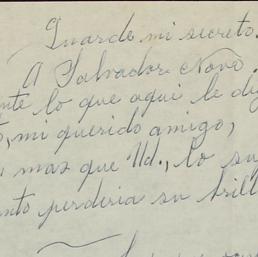 Guarde mi secreto.
A Salvador Novo.
nte lo que aqui le di
mi querido amigo,
mas que Ud., lo su
nto perderia su brill